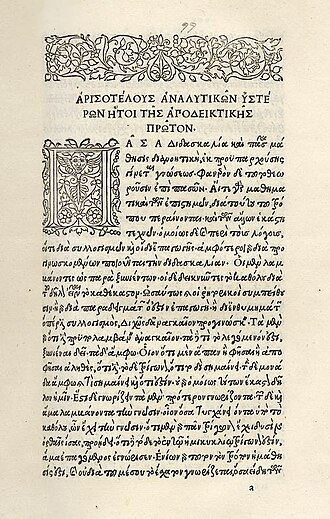 ΑΡΙΣΟΤΕΛΟΥΣ ΑΝΑΛΥΤΙΚΩΝ ΥΣΤΕ
ΡΩΝ ΗΤΟΙ ΤΗΣ ΑΠΟΔΕΙΚΤΙΚΗΣ
ΠΡΩΤΟΝ.
ΠΑΣΑ διδασκαλία καὶ πᾶσα μά
θησις διανοητικὴ, ἐκ προϋπαρχούσης
γίνεται γνώσεως. Φανερὸν δὲ τοῦτο θεω
ροῦσιν ἐπὶ πασῶν. Αἵ τε γὰρ μαθημα
τικαὶ τῶν ἐπιστημῶν, διὰ τούτου τοῦ τρό
που περαίνονται, καὶ τῶν ἄλλων ἑκάστη
τεχνῶν. ὁμοίως δὲ καὶ περὶ τοὺς λόγους,
οἵ τε διὰ συλλογισμῶν καὶ οἱ δι' ἐπαγωγῆς. ἀμφότεροι γὰρ διὰ
προγινωσκομένων ποιοῦνται τὴν διδασκαλίαν. Οἱ μὲν λαμ
βάνοντες ὡς παρὰ ξυνιέντων. οἱ δὲ δεικνύντες τὸ καθόλου διὰ
τοῦ δῆλον εἶναι τὸ καθέκαστον. Ὡσαύτως καὶ οἱ ῥητορικοὶ συμπείθου
σιν. ἢ γὰρ διὰ παραδειγμάτων, ὅ ἐστιν ἐπαγωγὴ. ἢ δι' ἐνθυμημάτων
ὅπερ ἐστὶ συλλογισμός. Διχῶς δ' ἀναγκαῖον προγινώσκειν. Τὰ μὲν
γὰρ ὅτι ἔστι προϋπολαμβάνειν ἀναγκαῖον. τὰ δὲ τί τὸ λεγόμενόν ἐστι
ξυνιέναι δεῖ. τὰ δ' ἄμφω. Οἷον ὅτι μὲν ἅπαν ἢ φῆσαι ἢ ἀπο
φῆσαι ἀληθὲς, ὅτι ἔστι. τὸ δὲ τρίγωνον, ὅτι τοδὶ σημαίνει. τὴν δὲ μονά
δα ἄμφω. καὶ τί σημαίνει καὶ ὅτι ἔστιν. οὐ γὰρ ὁμοίως τούτων ἕκαστον δῆ
λον ἡμῖν. Ἔστι δὲ γνωρίζειν τὰ μὲν πρότερον γνωρίζοντα. τῶν δὲ καὶ
ἅμα λαμβάνοντα τὴν γνῶσιν. οἷον ὅσα τυγχάνει ὄντα ὑπὸ τὸ
καθόλου, ὧν ἔχει τὴν γνῶσιν. ὅτι μὲν γὰρ πᾶν τρίγωνον ἔχει δυσὶν
ὀρθαῖς ἴσας, προῄδει. ὅτι δὲ τόδε τὸ ἐν τῷ ἡμικυκλίῳ τρίγωνόν ἐστιν,
ἅμα ἐπαγόμενος ἐγνώρισεν. Ἐνίων γὰρ τοῦτον τὸν τρόπον ἡ μάθη
σίς ἐστι, καὶ οὐ διὰ τοῦ μέσου τὸ ἔσχατον γνωρίζεται. ὅσα ἤδη τῶν
a